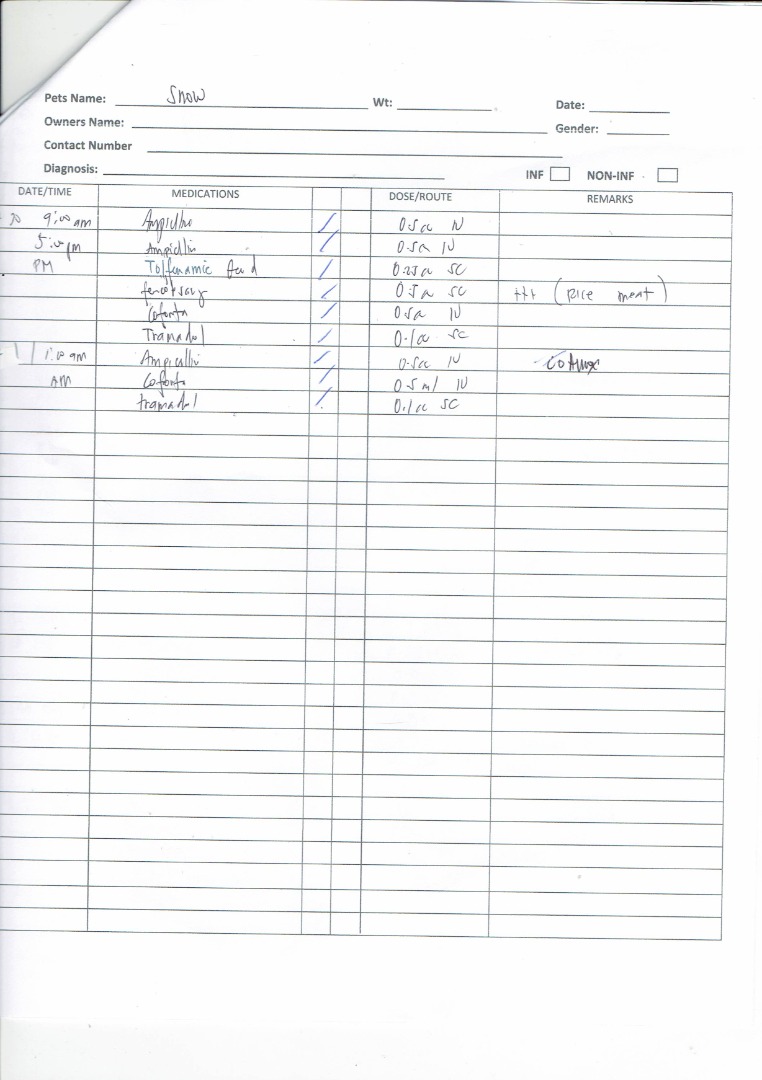 Pets Name: Snow Wt: Date:
Owners Name: Gender:
Contact Number
Diagnosis: INF NON-INF
DATE/TIME MEDICATIONS DOSE/ROUTE REMARKS
30 9:00 am Ampicillin 0.5cc IV
5:00 pm Ampicillin 0.5cc IV
PM Tolfenamic 0.25cc SC
0.5cc SC +++ (Rice meat)
Coforta 0.5cc IV
Tramadol 0.1cc SC
1:00 am Ampicillin 0.5cc IV
AM Coforta 0.5ml IV
tramadol 0.1cc SC